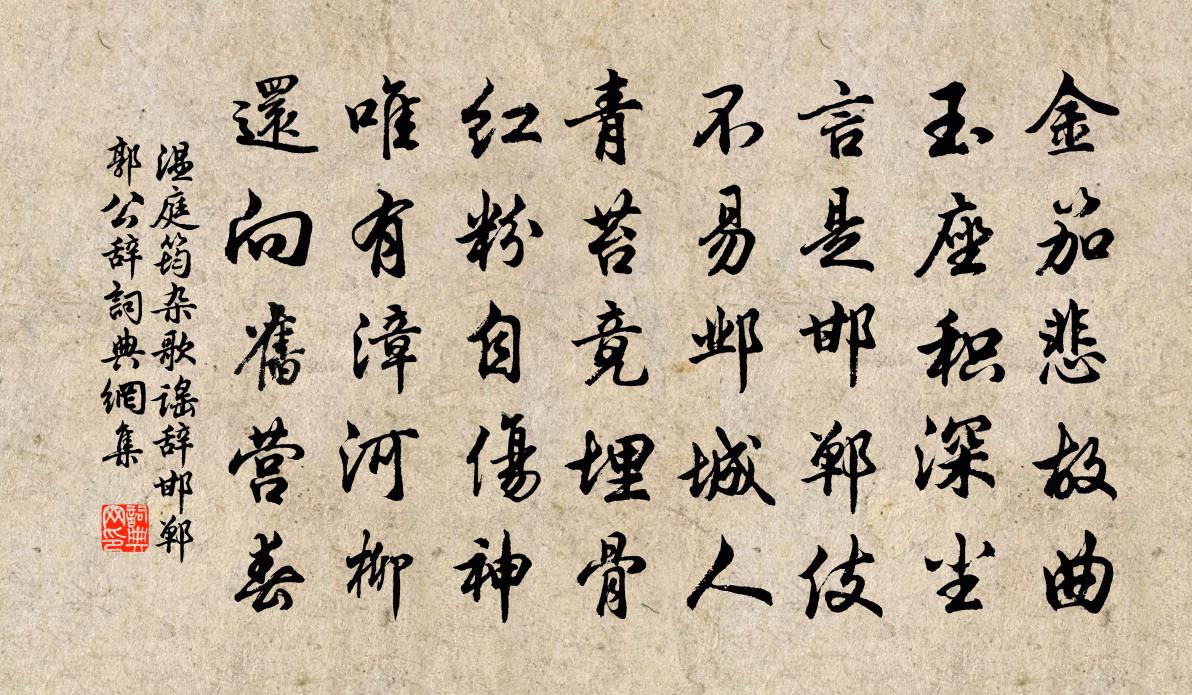 金笳悲故曲
玉座积深尘
言是邯郸伎
不易邺城人
青苔竟埋骨
红粉自傷神
唯有漳河柳
還向舊营春
温庭筠杂歌謠辞邯郸
郭公辞詞典網集
詞典
网印